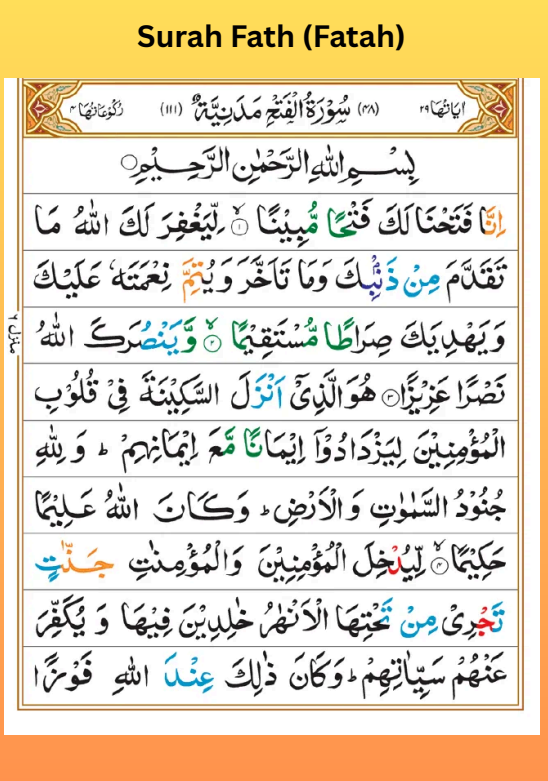 Surah Fath (Fatah)
اٰیَاتُهَا ۲۹ (۴۸) سُوْرَةُ الْفَتْحِ مَدَنِيَّةٌ (۱۱۱) رُكُوْعَاتُهَا ۴
بِسْمِ اللهِ الرَّحْمٰنِ الرَّحِيْمِ○
اِنَّا فَتَحْنَا لَكَ فَتْحًا مُّبِيْنًا ۙ۱ لِّيَغْفِرَ لَكَ اللهُ مَا
تَقَدَّمَ مِنْ ذَنْۢبِكَ وَمَا تَاَخَّرَ وَيُتِمَّ نِعْمَتَهٗ عَلَيْكَ
وَيَهْدِيَكَ صِرَاطًا مُّسْتَقِيْمًا ۙ۲ وَّيَنْصُرَكَ اللهُ
نَصْرًا عَزِيْزًا ۳ هُوَ الَّذِيْۤ اَنْزَلَ السَّكِيْنَةَ فِيْ قُلُوْبِ
الْمُؤْمِنِيْنَ لِيَزْدَادُوْۤا اِيْمَانًا مَّعَ اِيْمَانِهِمْ ؕ وَلِلّٰهِ
جُنُوْدُ السَّمٰوٰتِ وَالْاَرْضِ ؕ وَكَانَ اللهُ عَلِيْمًا
حَكِيْمًا ۙ۴ لِّيُدْخِلَ الْمُؤْمِنِيْنَ وَالْمُؤْمِنٰتِ جَنّٰتٍ
تَجْرِيْ مِنْ تَحْتِهَا الْاَنْهٰرُ خٰلِدِيْنَ فِيْهَا وَيُكَفِّرَ
عَنْهُمْ سَيِّاٰتِهِمْ ؕ وَكَانَ ذٰلِكَ عِنْدَ اللهِ فَوْزًا
منزل ۶